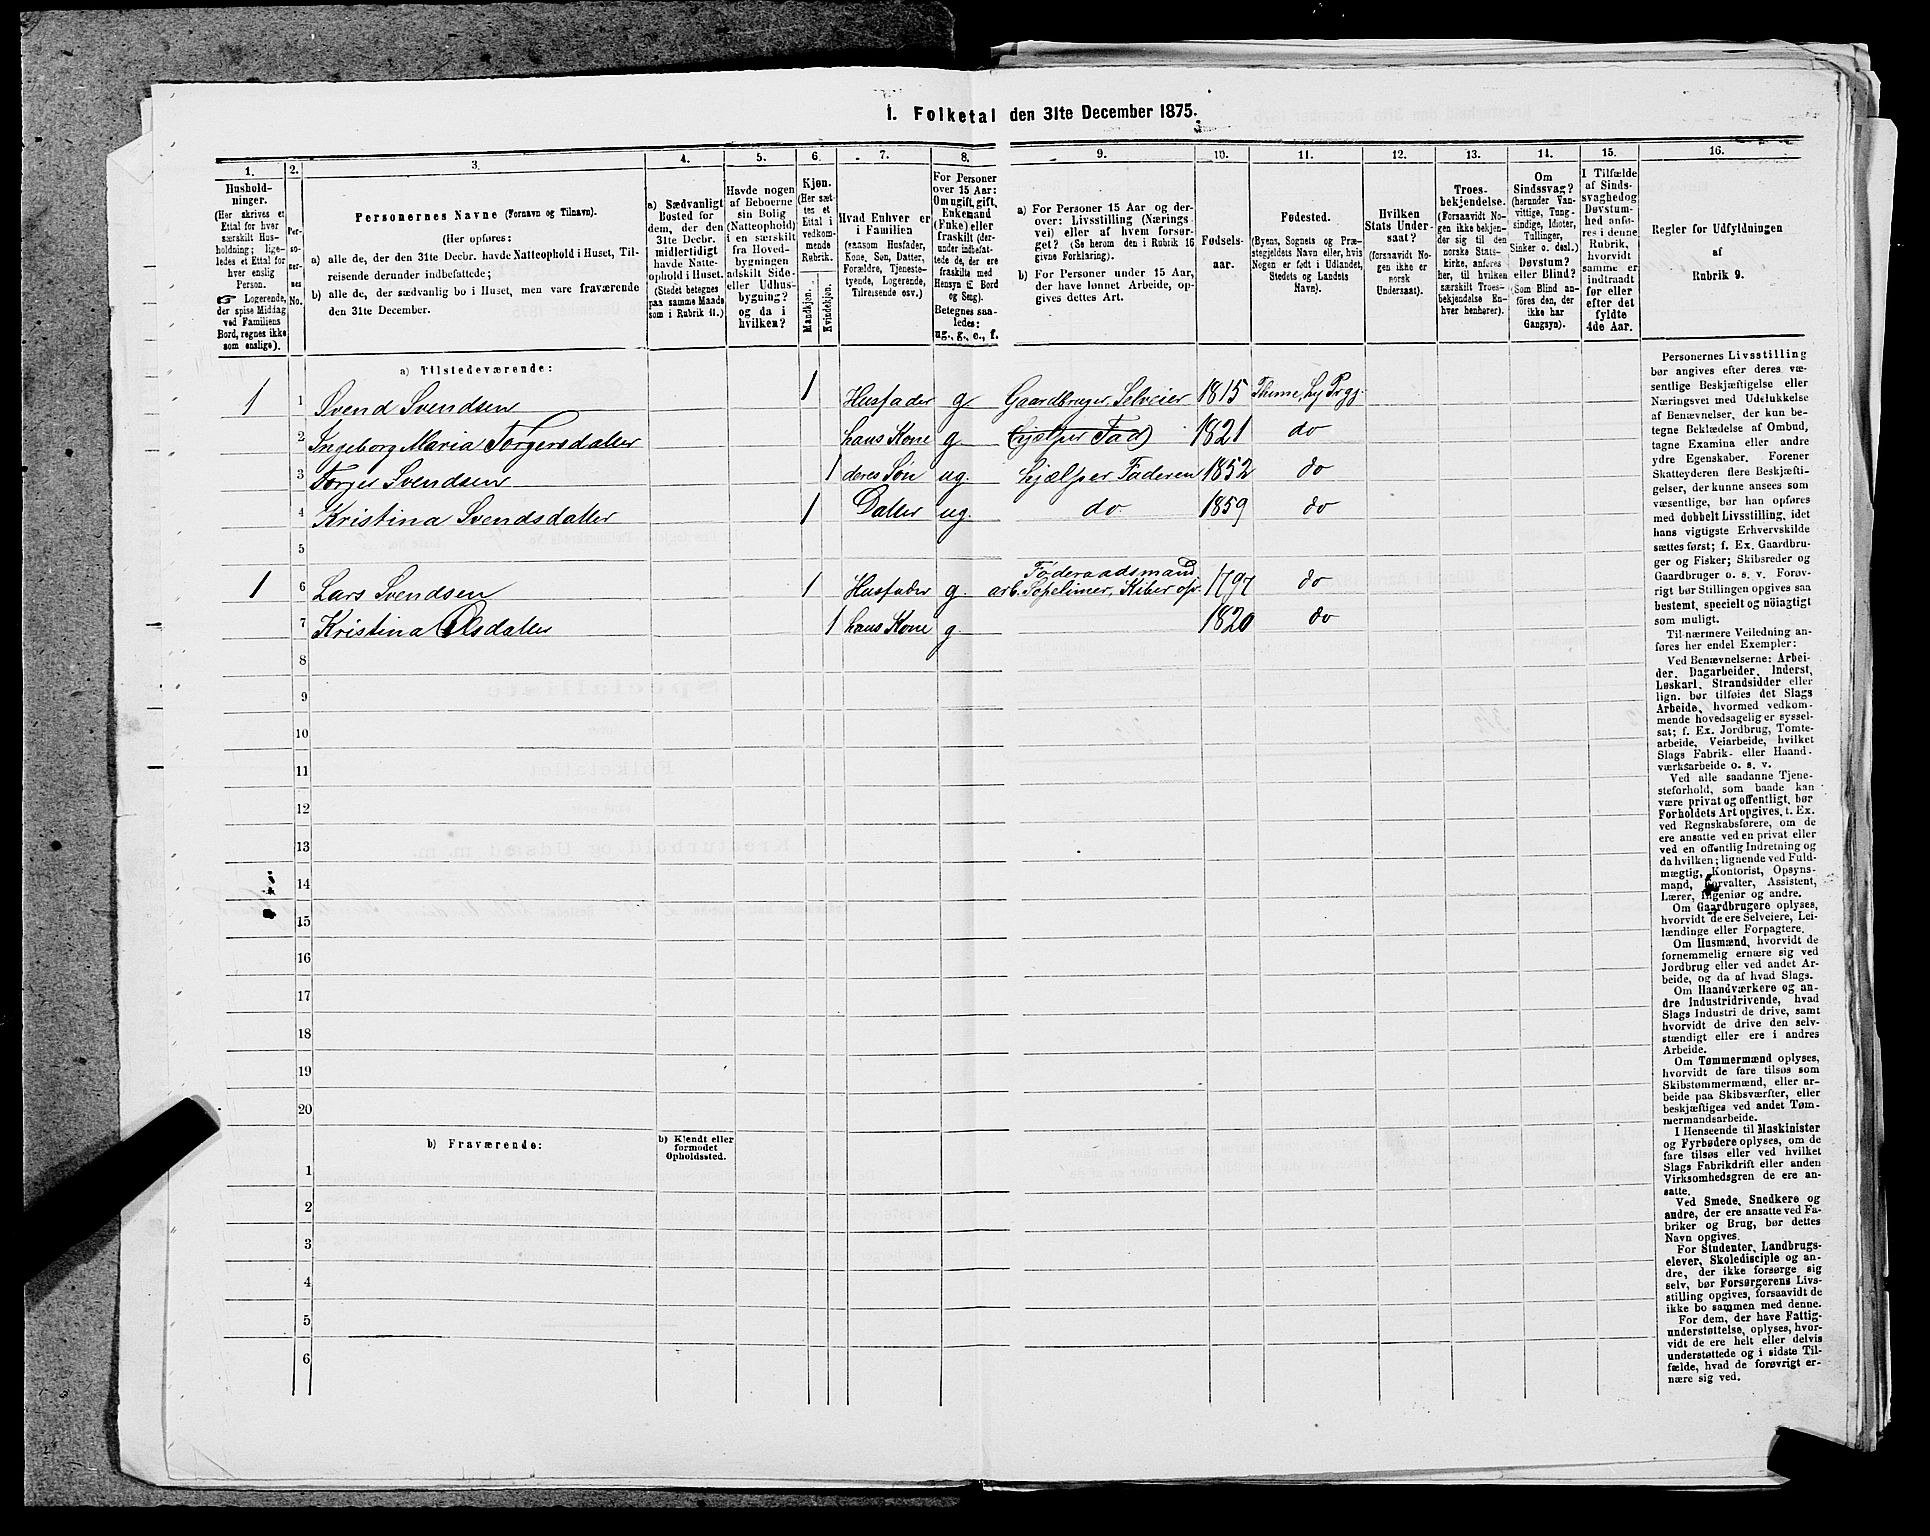 1. Folketal den 31te December 1875.
1. 2. 3. 4. 5. 6. 7. 8. 9. 10. 11. 12. 13. 14. 15. 16.
Hushold-
ninger.
(Her skrives et
Ettal for hver
særskilt Hus-
holdning; lige-
ledes et Ettal for
hver enslig
Person.
☞ Logerende,
der spise Middag
ved Familiens
Bord, regnes ikke
som enslige).
Per-
so-
ner-
nes
No.
Personernes Navne (Fornavn og Tilnavn).
(Her opføres:
a) alle de, der den 31te Decbr. havde Natteophold i Huset, Til-
reisende derunder indbefattede;
b) alle de, der sædvanlig bo i Huset, men vare fraværende
den 31te December.
a) Sædvanligt
Bosted for
dem, der den
31te Decbr.
midlertidigt
havde Natte-
ophold i Huset.
(Stedet betegnes
paa samme Maade
som i Rubrik 11.)
Havde nogen
af Beboerne
sin Bolig
(Natteophold)
i en særskilt
fra Hoved-
bygningen
adskilt Side-
eller Udhus-
bygning?
og da i
hvilken?
Kjøn.
(Her sæt-
tes et
Ettal i
vedkom-
mende
Rubrik.
Mandkjøn.
Kvindekjøn.
Hvad Enhver er
i Familien
(saasom Husfader,
Kone, Søn, Datter,
Forældre, Tjeneste-
tyende, Logerende,
Tilreisende osv.)
For Personer
over 15 Aar:
Om ugift, gift,
Enkemand
(Enke) eller
fraskilt (der-
under indbefat-
tede de, der ere
fraskilte med
Hensyn til Bord
og Seng).
Betegnes saa-
ledes:
ug., g., e., f.
a) For Personer 15 Aar og der-
over: Livsstilling (Nærings
vei) eller af hvem forsør-
get? (Se herom den i Rubrik 16
givne Forklaring).
b) For Personer under 15 Aar,
der have lønnet Arbeide, op-
gives dettes Art.
Fødsels-
aar.
Fødested.
(Byens, Sognets og Præ-
stegjeldets Navn eller, hvis
Nogen er født i Udlandet,
Stedets og Landets
Navn).
Hvilken
Stats Under-
saat?
(forsaavidt No-
gen ikke er
norsk
Undersaat).
Troes-
bekjendelse.
(Forsaavidt No-
gen ikke bekjen-
der sig til den
norske Stats-
kirke, anføres
her, til hvilken
særskilt Troes-
bekjendelse En-
hver henhører).
Om
Sindssvag?
(herunder Van-
vittige, Tung-
sindige, Idioter,
Tullinger,
Sinker o. desl.).
Døvstum?
eller Blind?
(Som Blind an-
føres den, der
ikke har
Gangsyn).
I Tilfælde
af Sinds-
svaghed og
Døvstum-
hed anfø-
res i denne
Rubrik,
hvorvidt
samme er
indtraadt
før eller
efter det
fyldte
4de Aar.
Regler for Udfyldningen
af
Rubrik 9.
a) Tilstedeværende:
1 1 Svend Svendsen 1 Husfader g Gaardbruger, Selveier 1815
2 Ingeborg Maria Torgersdatter hans Kone g. (hjælper Fad) 1821 do
3 Torger Svendsen 1 deres Søn ug. hjælper Faderen 1852 do
4 Kristina Svendsdatter 1 Datter ug. do 1859 do
5
Føderaadsmand
1 6 Lars Svendsen 1 Husfader g. arb. 1797 do
7 Kristina Olsdatter 1 hans Kone g. 1820 do
8
9
10
11
12
13
14
15
16
17
18
19
20
b) Fraværende:
b) Kjendt eller
formodet
Opholdssted.
1
2
3
4
5
6
Personernes Livsstilling
bør angives efter deres væ-
sentlige Beskjæftigelse eller
Næringsvei med Udelukkelse
af Benævnelser, der kun be-
tegne Beklædelse af Ombud,
tagne Examina eller andre
ydre Egenskaber. Forener
Skatteyderen flere Beskjæfti-
gelser, der kunne ansees som
væsentlige, bør han opføres
med dobbelt Livsstilling, idet
hans vigtigste Erhvervskilde
sættes først; f. Ex. Gaardbru-
ger og Fisker; Skibsreder og
Gaardbruger o. s. v. Forøv-
rigt bør Stillingen opgives saa
bestemt, specielt og nöiagtigt
som muligt.
Til nærmere Veiledning an-
føres her endel Exempler:
Ved Benævnelserne: Arbei-
der, Dagarbeider, Inderst,
Løskarl, Strandsidder eller
lign. bør tilføies det Slags
Arbeide, hvormed vedkom-
mende hovedsagelig er syssel-
sat; f. Ex. Jordbrug, Tomte-
arbeide, Veiarbeide, hvilket
Slags Fabrik- eller Haand-
værksarbeide o. s. v.
Ved alle saadanne Tjene-
steforhold, som baade kan
være privat og offentligt, bør
Forholdets Art opgives, t. Ex.
ved Regnskabsførere, om de
ere ansatte ved en privat eller
ved en offentlig Indretning og
da hvilken; lignende ved Fuld-
mægtig, Kontorist, Opsyns-
mand, Forvalter, Assistent,
Lærer, Ingeniør og andre.
Om Gaardbrugere oplyses,
hvorvidt de ere Selveiere, Lei-
lændinge eller Forpagtere.
Om Husmænd, hvorvidt de
fornemmelig ernære sig ved
Jordbrug eller ved andet Ar-
beide, og da af hvad Slags.
Om Haandværkere og an-
dre Industridrivende, hvad
Slags Industri de drive, samt
hvorvidt de drive den selv-
stændigt eller ere i andres
Arbeide.
Om Tømmermænd oplyses,
hvorvidt de fare tilsøs som
Skibstømmermænd, eller ar-
beide paa Skibsværfter, eller
beskjæftiges ved andet Tøm-
mermandsarbeide.
I Henseende til Maskinister
og Fyrbødere oplyses, om de
fare tilsøs eller ved hvilket
Slags Fabrikdrift eller anden
Virksomhedsgren de ere an-
satte.
Ved Smede, Snedkere og
andre, der ere ansatte ved Fa-
briker og Brug, bør dettes
Navn opgives.
For Studenter, Landbrugs-
elever, Skoledisciple og an-
dre, der ikke forsørge sig
selv, bør Forsørgerens Livs-
stilling opgives, forsaavidt de
ikke bo sammen med denne.
For dem, der have Fattig-
understøttelse, oplyses, hvor-
vidt de ere helt eller delvis
understøttede og i sidste Til-
fælde, hvad de forøvrigt er-
nære sig ved.